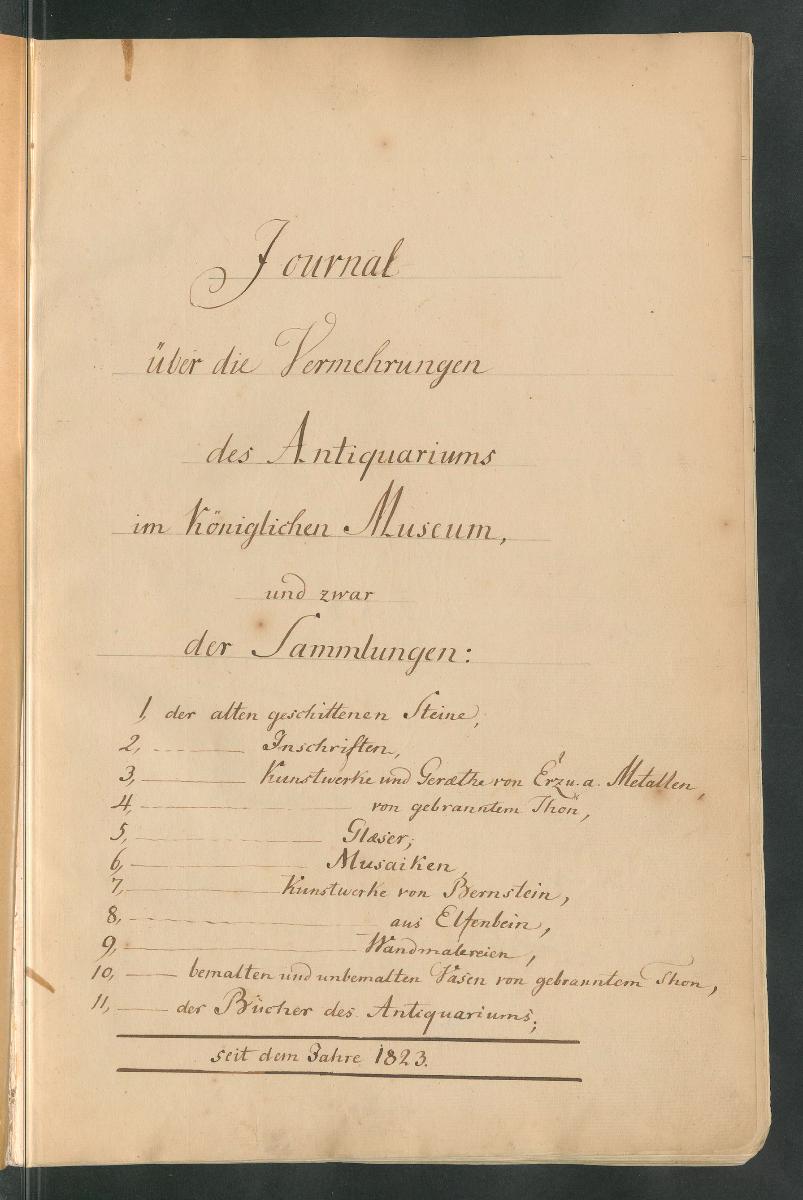 Journal
über die Vermehrungen
des Antiquariums
im Königlichen Museum,
und zwar
der Sammlungen:
1, der alten geschittenen Steine,
2, - - - —— Inschriften,
3, ——— Kunstwerke und Geræthe von Erz u. a. Metallen,
4, ——— von gebranntem Thon,
5, ——— Glæser;
6, ——— Musaiken,
7, ——— Kunstwerke von Bernstein,
8, ——— aus Elfenbein,
9, ——— Wandmalereien,
10, —— bemalten und unbemalten Vasen von gebranntem Thon,
11, —— der Bücher des Antiquariums;
seit dem Jahre 1823.